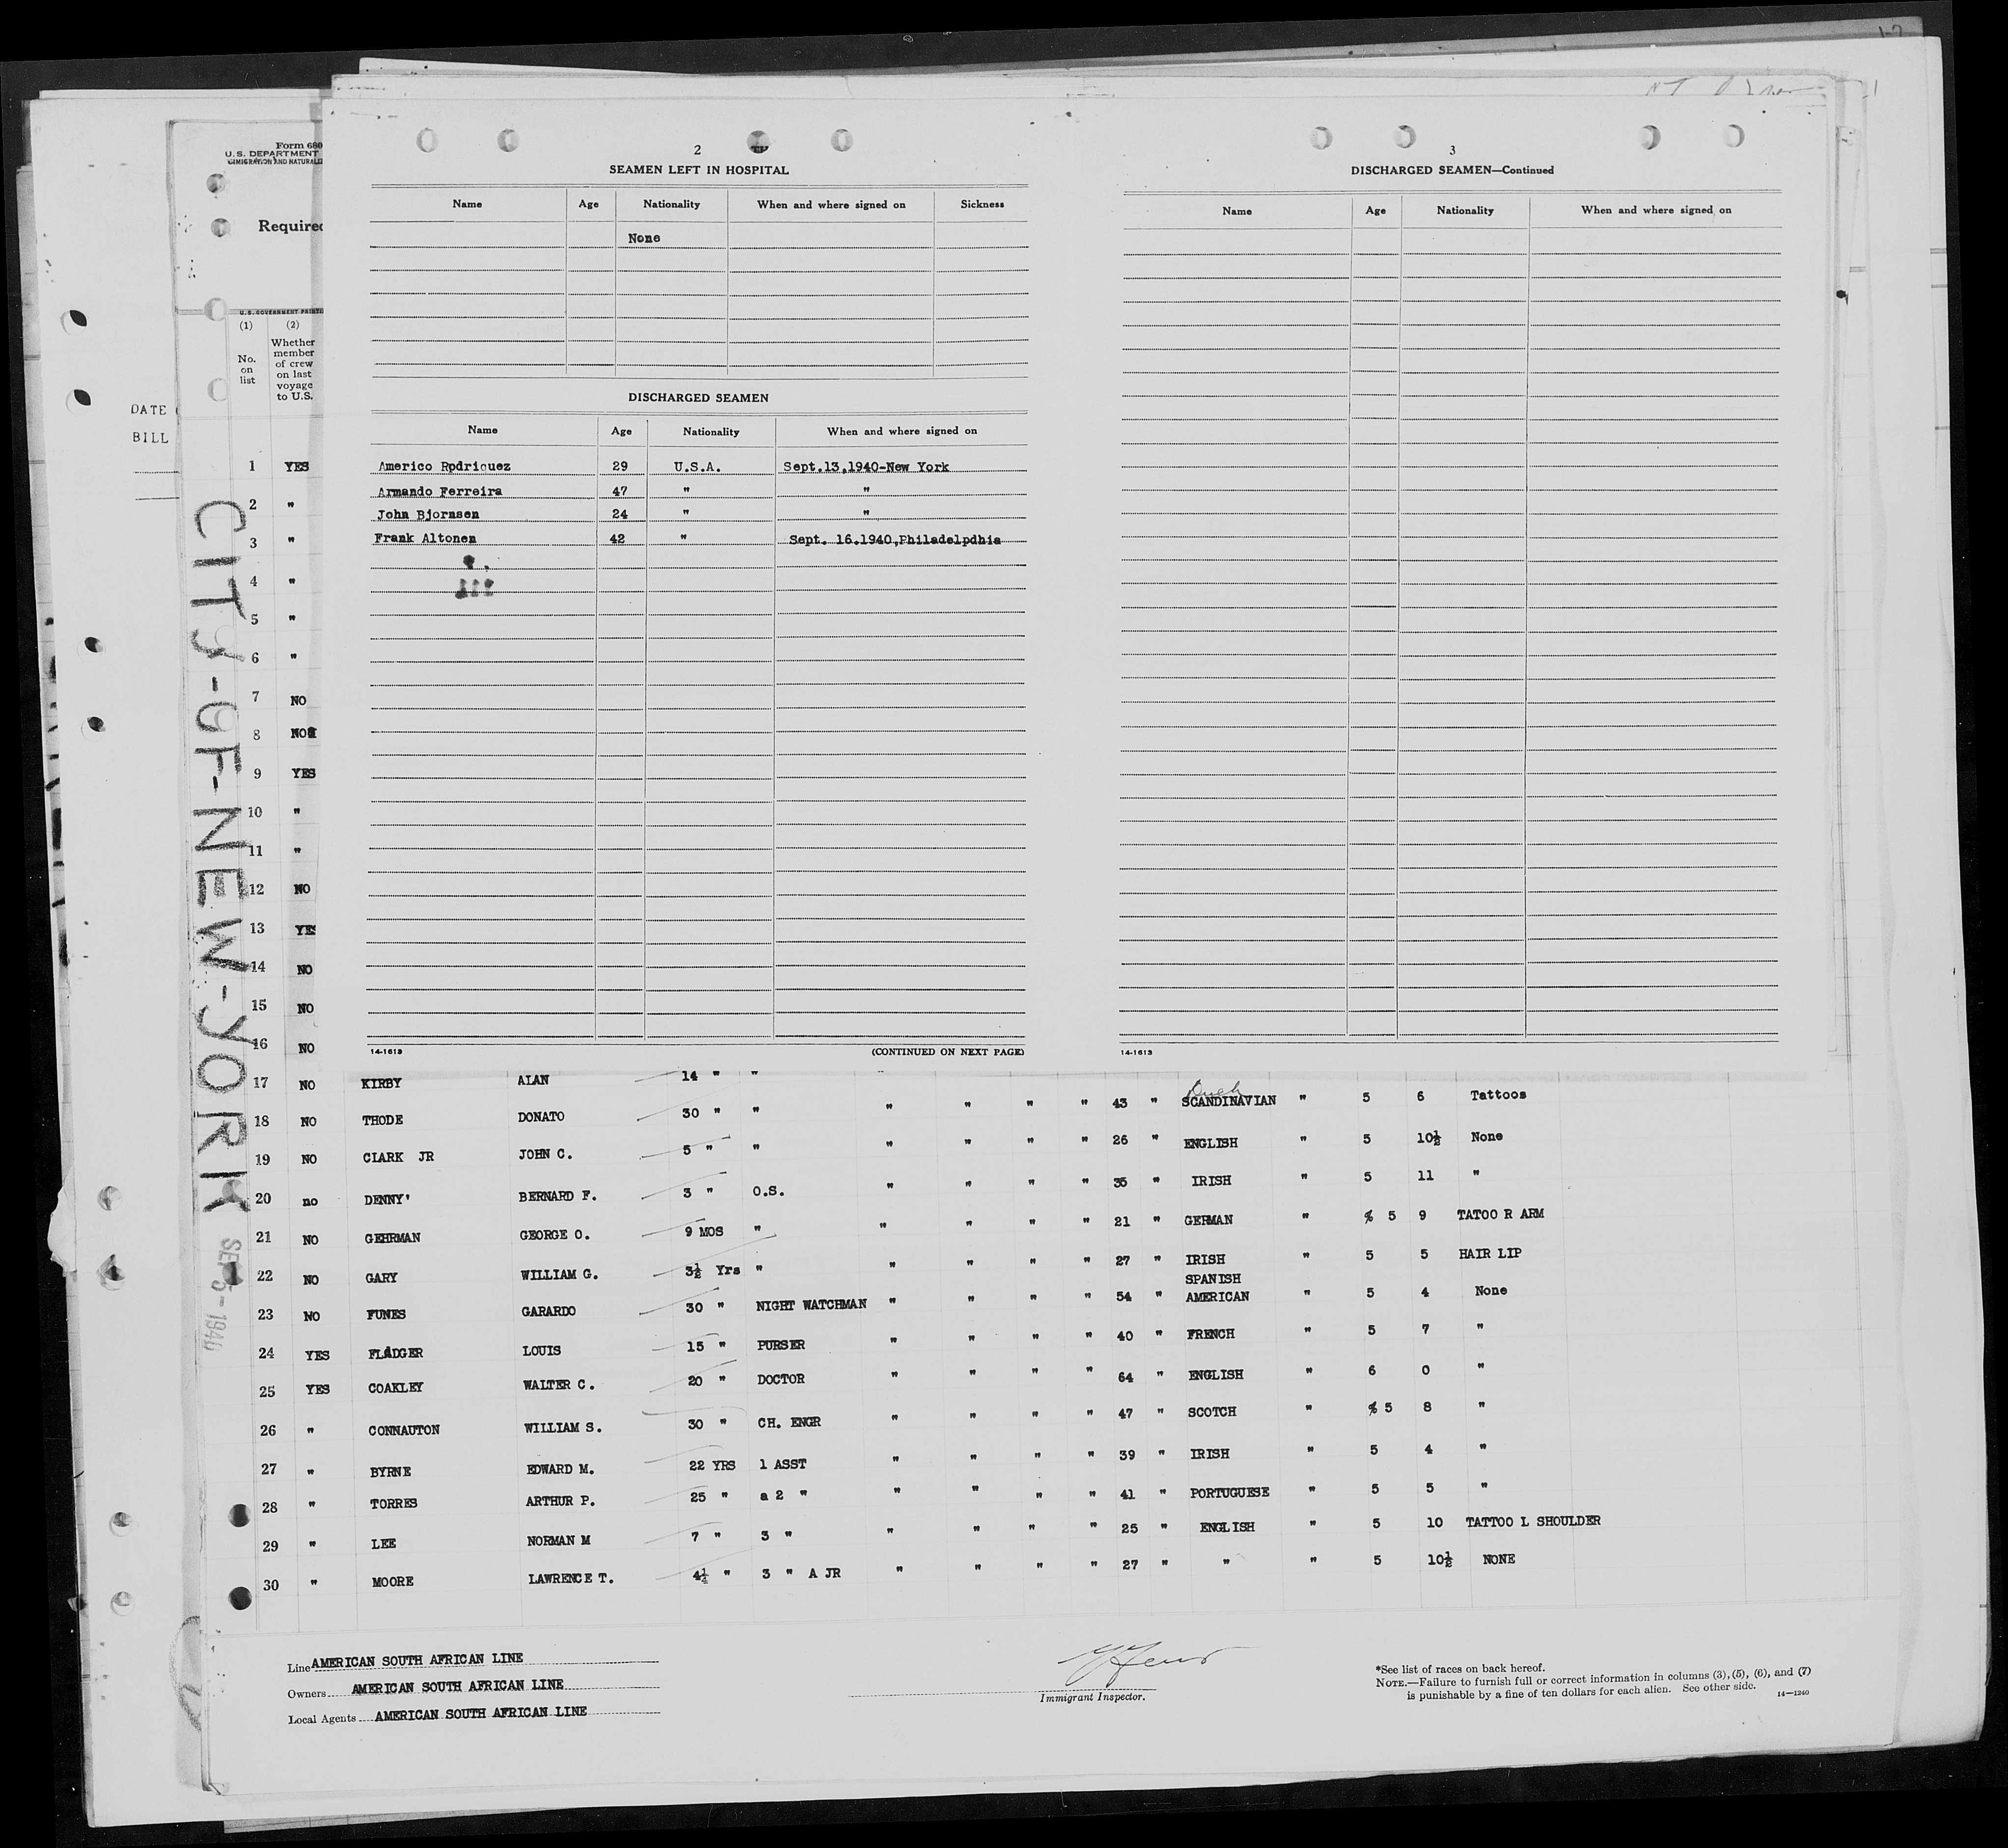 Form 680
U. S. DEPARTMENT
IMMIGRATION AND NATURALI
Required
U. S. GOVERNMENT PRINTI
(1) (2)
No. on list
Whether member of crew on last voyage to U.S.
DATE
BILL
CITY-OF-NEW-YORK
SEP 5-1940
1 YES
2 "
3 "
4 "
5 "
6 "
7 NO
8 NO
9 YES
10 "
11 "
12 NO
13 YES
14 NO
15 NO
16 NO
2
SEAMEN LEFT IN HOSPITAL
Name Age Nationality When and where signed on Sickness
None
DISCHARGED SEAMEN
Name Age Nationality When and where signed on
Americo Rodriquez 29 U.S.A. Sept.13,1940-New York
Armando Ferreira 47 " "
John Bjornsen 24 " "
Frank Altonen 42 " Sept. 16.1940,Philadelpdhia
14-1613 (CONTINUED ON NEXT PAGE)
3
DISCHARGED SEAMEN—Continued
Name Age Nationality When and where signed on
14-1613
17 NO KIRBY ALAN 14 " " "
18 NO THODE DONATO 30 " " " " " " 43 " SCANDINAVIAN " 5 6 Tattoos
19 NO CLARK JR JOHN C. 5 " " " " " " 26 " ENGLISH " 5 10½ None
20 no DENNY' BERNARD F. 3 " O.S. " " " " 35 " IRISH " 5 11 "
21 NO GEHRMAN GEORGE O. 9 MOS " " " " " 21 " GERMAN " 5 9 TATOO R ARM
22 NO GARY WILLIAM G. 3½ Yrs " " " " " 27 " IRISH " 5 5 HAIR LIP
23 NO FUNES GARARDO 30 " NIGHT WATCHMAN " " " " 54 " SPANISH AMERICAN " 5 4 None
24 YES FLADGER LOUIS 15 " PURSER " " " " 40 " FRENCH " 5 7 "
25 YES COAKLEY WALTER C. 20 " DOCTOR " " " " 64 " ENGLISH " 6 0 "
26 " CONNAUTON WILLIAM S. 30 " CH. ENGR " " " " 47 " SCOTCH " 5 8 "
27 " BYRNE EDWARD M. 22 YRS 1 ASST " " " " 39 " IRISH " 5 4 "
28 " TORRES ARTHUR P. 25 " a 2 " " " " " 41 " PORTUGUESE " 5 5 "
29 " LEE NORMAN M 7 " 3 " " " " " 25 " ENGLISH " 5 10 TATTOO L SHOULDER
30 " MOORE LAWRENCE T. 4½ " 3 " A JR " " " " 27 " " " 5 10½ NONE
Line AMERICAN SOUTH AFRICAN LINE
Owners AMERICAN SOUTH AFRICAN LINE
Local Agents AMERICAN SOUTH AFRICAN LINE
Immigrant Inspector.
*See list of races on back hereof.
NOTE.—Failure to furnish full or correct information in columns (3), (5), (6), and (7)
is punishable by a fine of ten dollars for each alien. See other side.
14—1240